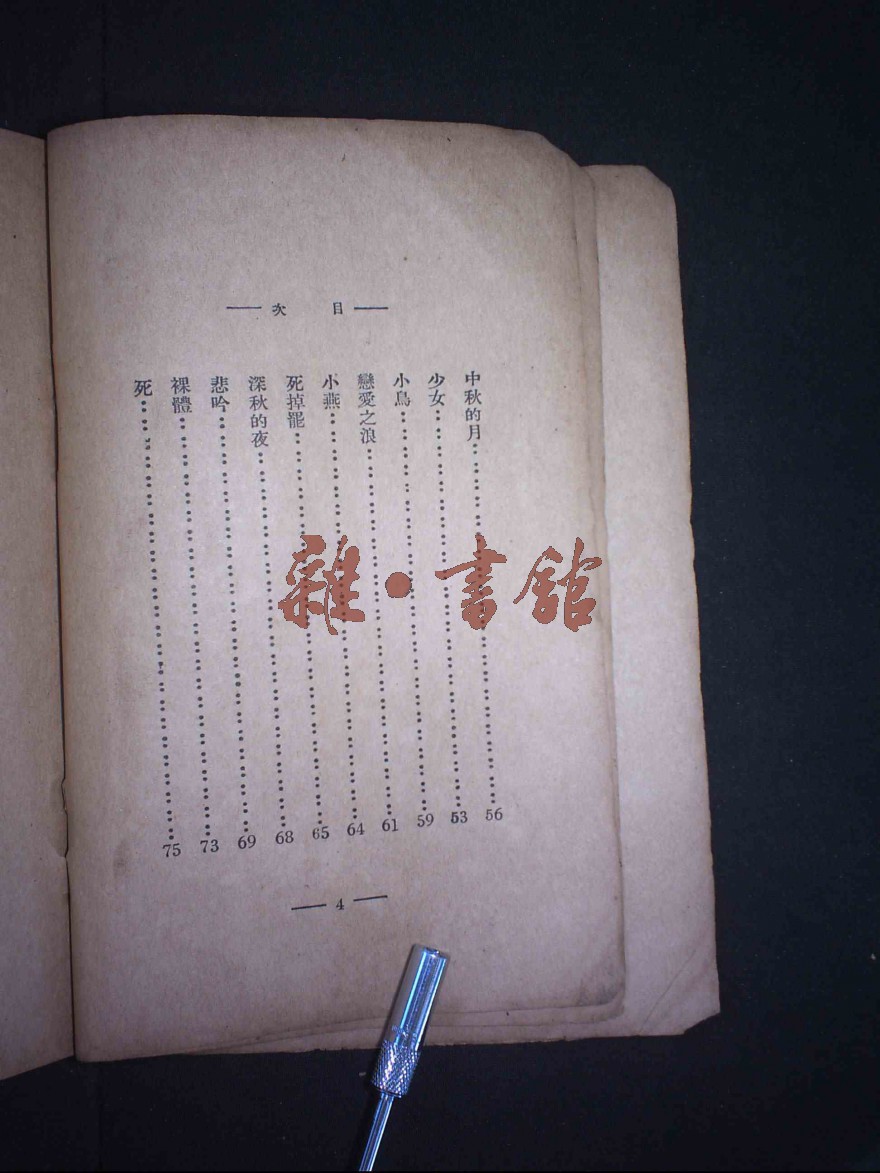 目次
中秋的月 56
少女 53
小鳥 59
戀愛之浪 61
小燕 64
死掉罷 65
深秋的夜 68
悲吟 69
裸體 73
死 75
4
雜·書館